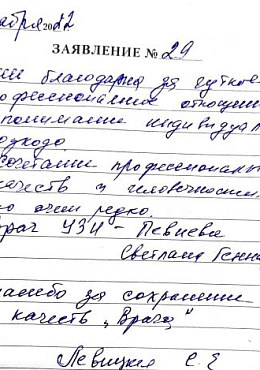 абря 2012
ЗАЯВЛЕНИЕ № 29
благодарна за чуткое
офессиональное отношени
понимание индивидуал
одхода.
сочетании профессиональн
качеств и человечности
очень редко.
врач УЗИ - Певнева
Светлана Генна
пасибо за сохранение
качеств „Врача"
Левицкая С. Я